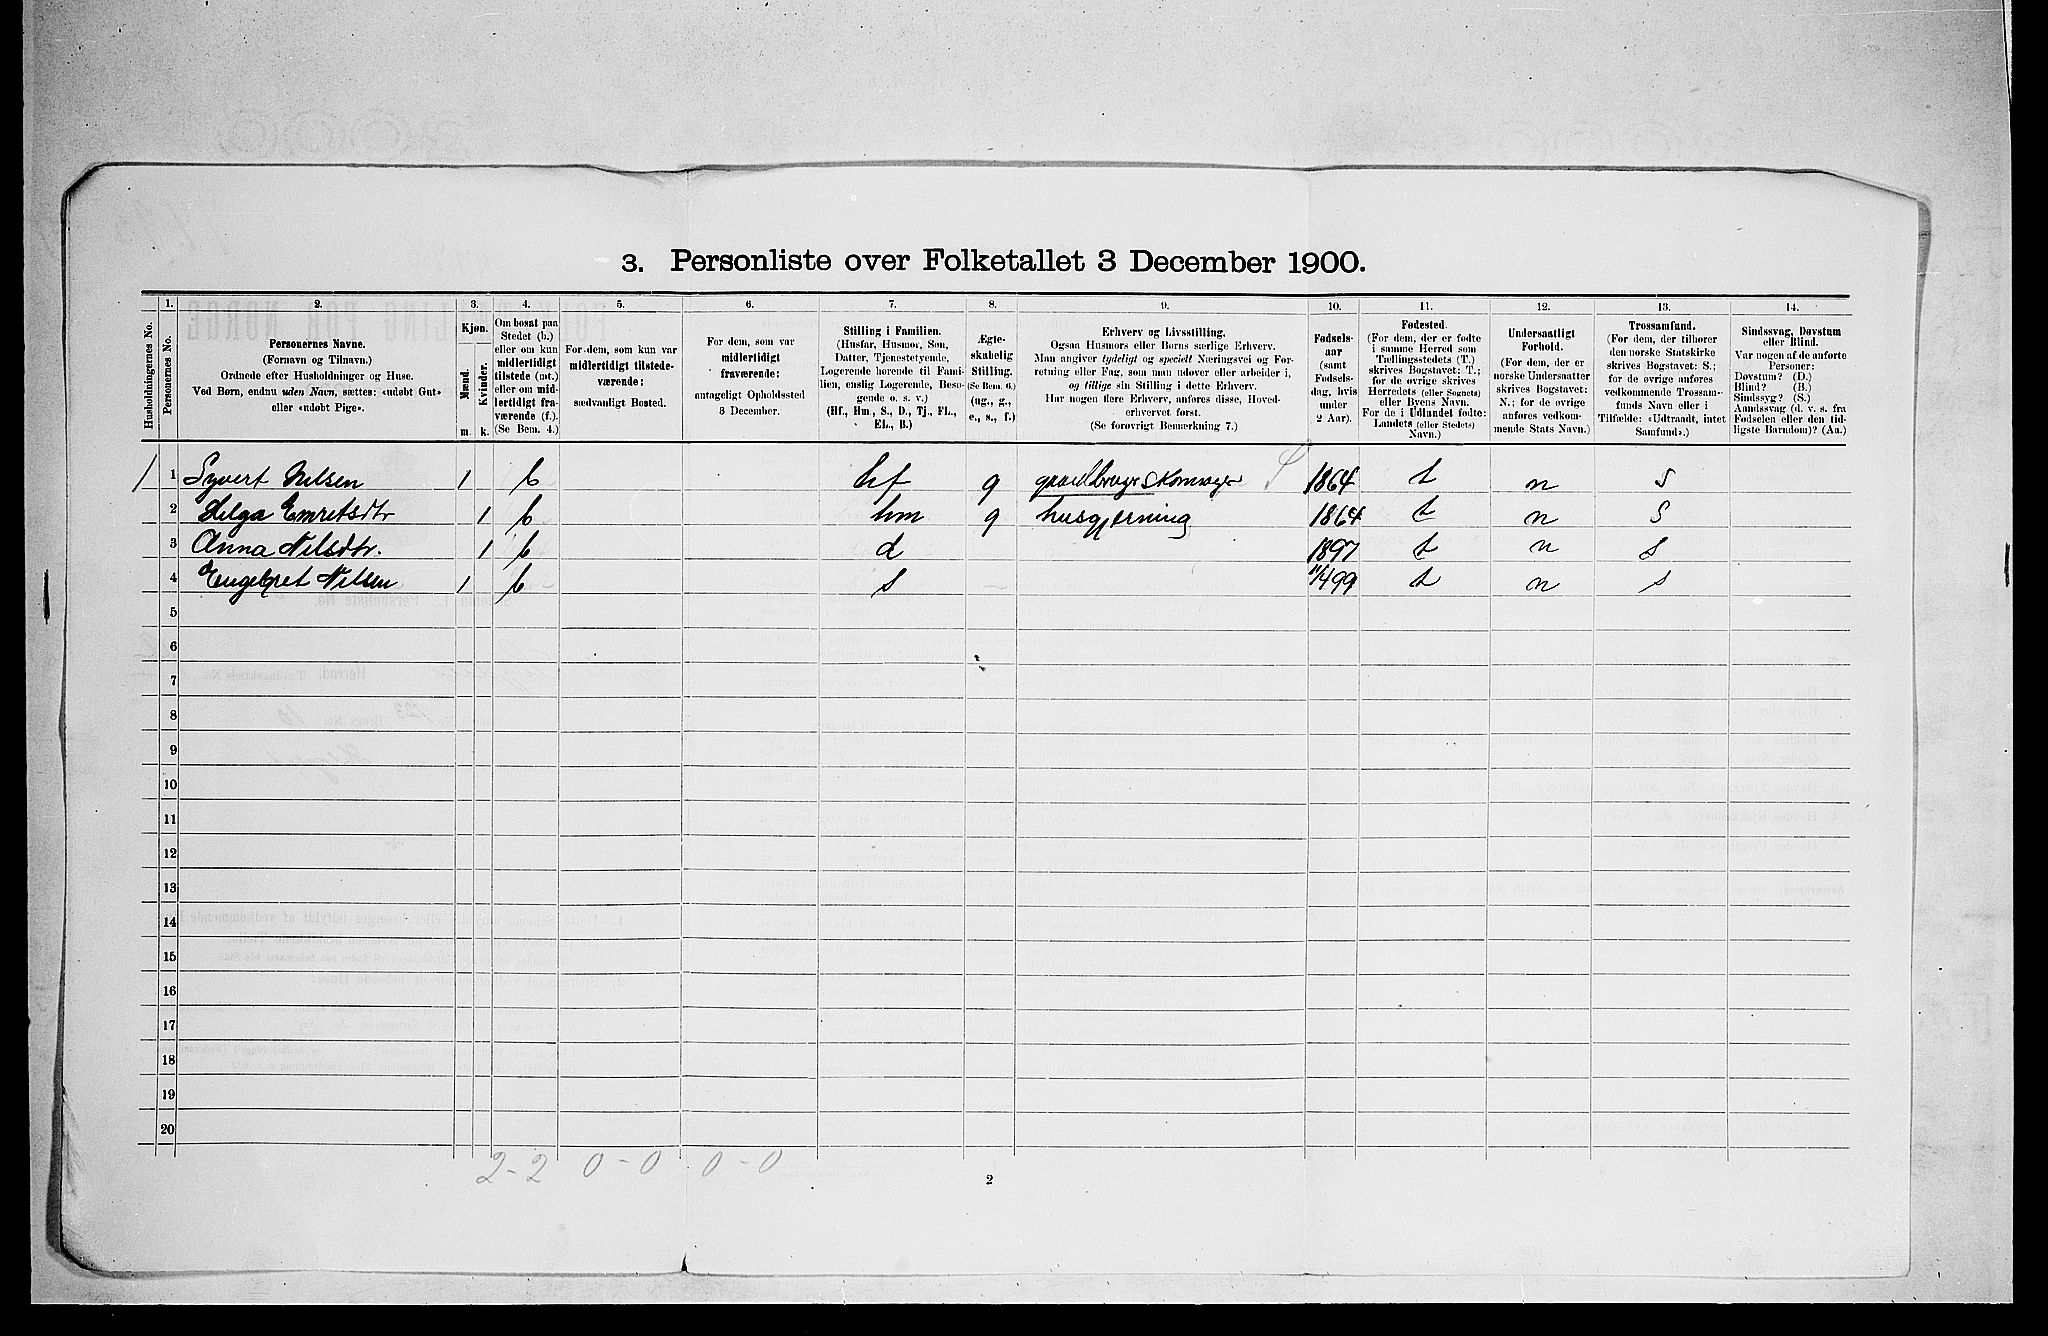 3. Personliste over Folketallet 3 December 1900.
Husholdningernes No.
1.
Personernes No.
2.
Personernes Navne.
(Fornavn og Tilnavn.)
Ordnede efter Husholdninger og Huse.
Ved Børn, endnu uden Navn, sættes: «udøbt Gut»
eller «udøbt Pige».
3.
Kjøn.
Mænd.
Kvinder.
m. k.
4.
Om bosat paa
Stedet (b.)
eller om kun
midlertidigt
tilstede (mt.)
eller om mid-
lertidigt fra-
værende (f.).
(Se Bem. 4.)
5.
For dem, som kun var
midlertidigt tilstede-
værende:
sædvanligt Bosted.
6.
For dem, som var
midlertidigt
fraværende:
antageligt Opholdssted
3 December.
7.
Stilling i Familien.
(Husfar, Husmor, Søn,
Datter, Tjenestetyende,
Logerende hørende til Fami-
lien, enslig Logerende, Beso-
gende o. s. v.)
(Hf., Hm., S., D., Tj., FL.,
EL., B.)
8.
Ægte-
skabelig
Stilling.
(Se Bem. 6.)
(ug., g.,
e., s., f.)
9.
Erhverv og Livsstilling.
Ogsaa Husmors eller Børns særlige Erhverv.
Man angiver tydeligt og specielt Næringsvei og For-
retning eller Fag, som man udover eller arbeider i,
og tillige sin Stilling i dette Erhverv.
Har nogen flere Erhverv, anføres disse, Hoved-
erhvervet først.
(Se forøvrigt Bemærkning 7.)
10.
Fødsels-
aar
(samt
Fødsels-
dag, hvis
under
2 Aar).
11.
Fødested.
(For dem, der er fødte
i samme Herred som
Tællingsstedets (T.)
skrives Bogstavet: T.;
for de øvrige skrives
Herredets (eller Sognets)
eller Byens Navn.
For de i Udlandet fødte:
Landets (eller Stedets)
Navn.)
12.
Undersaatligt
Forhold.
(For dem, der er
norske Undersaatter
skrives Bogstavet:
N.; for de øvrige
anføres vedkom-
mende Stats Navn.)
13.
Trossamfund.
(For dem, der tilhører
den norske Statskirke
skrives Bogstavet: S.;
for de øvrige anføres
vedkommende Trossam-
funds Navn eller i
Tilfælde: «Udtraadt, intet
Samfund».)
14.
Sindssvag, Døvstum
eller Blind.
Var nogen af de anførte
Personer:
Døvstum? (D.)
Blind? (B.)
Sindssyg? (S.)
Aandssvag (d. v. s. fra
Fødselen eller den tid-
ligste Barndom)? (Aa.)
1 1 Syvert Nilsen 1 b hf g 1864 t n S
2 Helga Emretsdtr 1 b hm g husgjerning 1864 t n S
3 Anna Nilsdtr. 1 b d 1897 t n s
4 Engebret Nilsen 1 b s 11/4 99 t n s
5
6
7
8
9
10
11
12
13
14
15
16
17
18
19
20
2-2 0-0 0-0
2